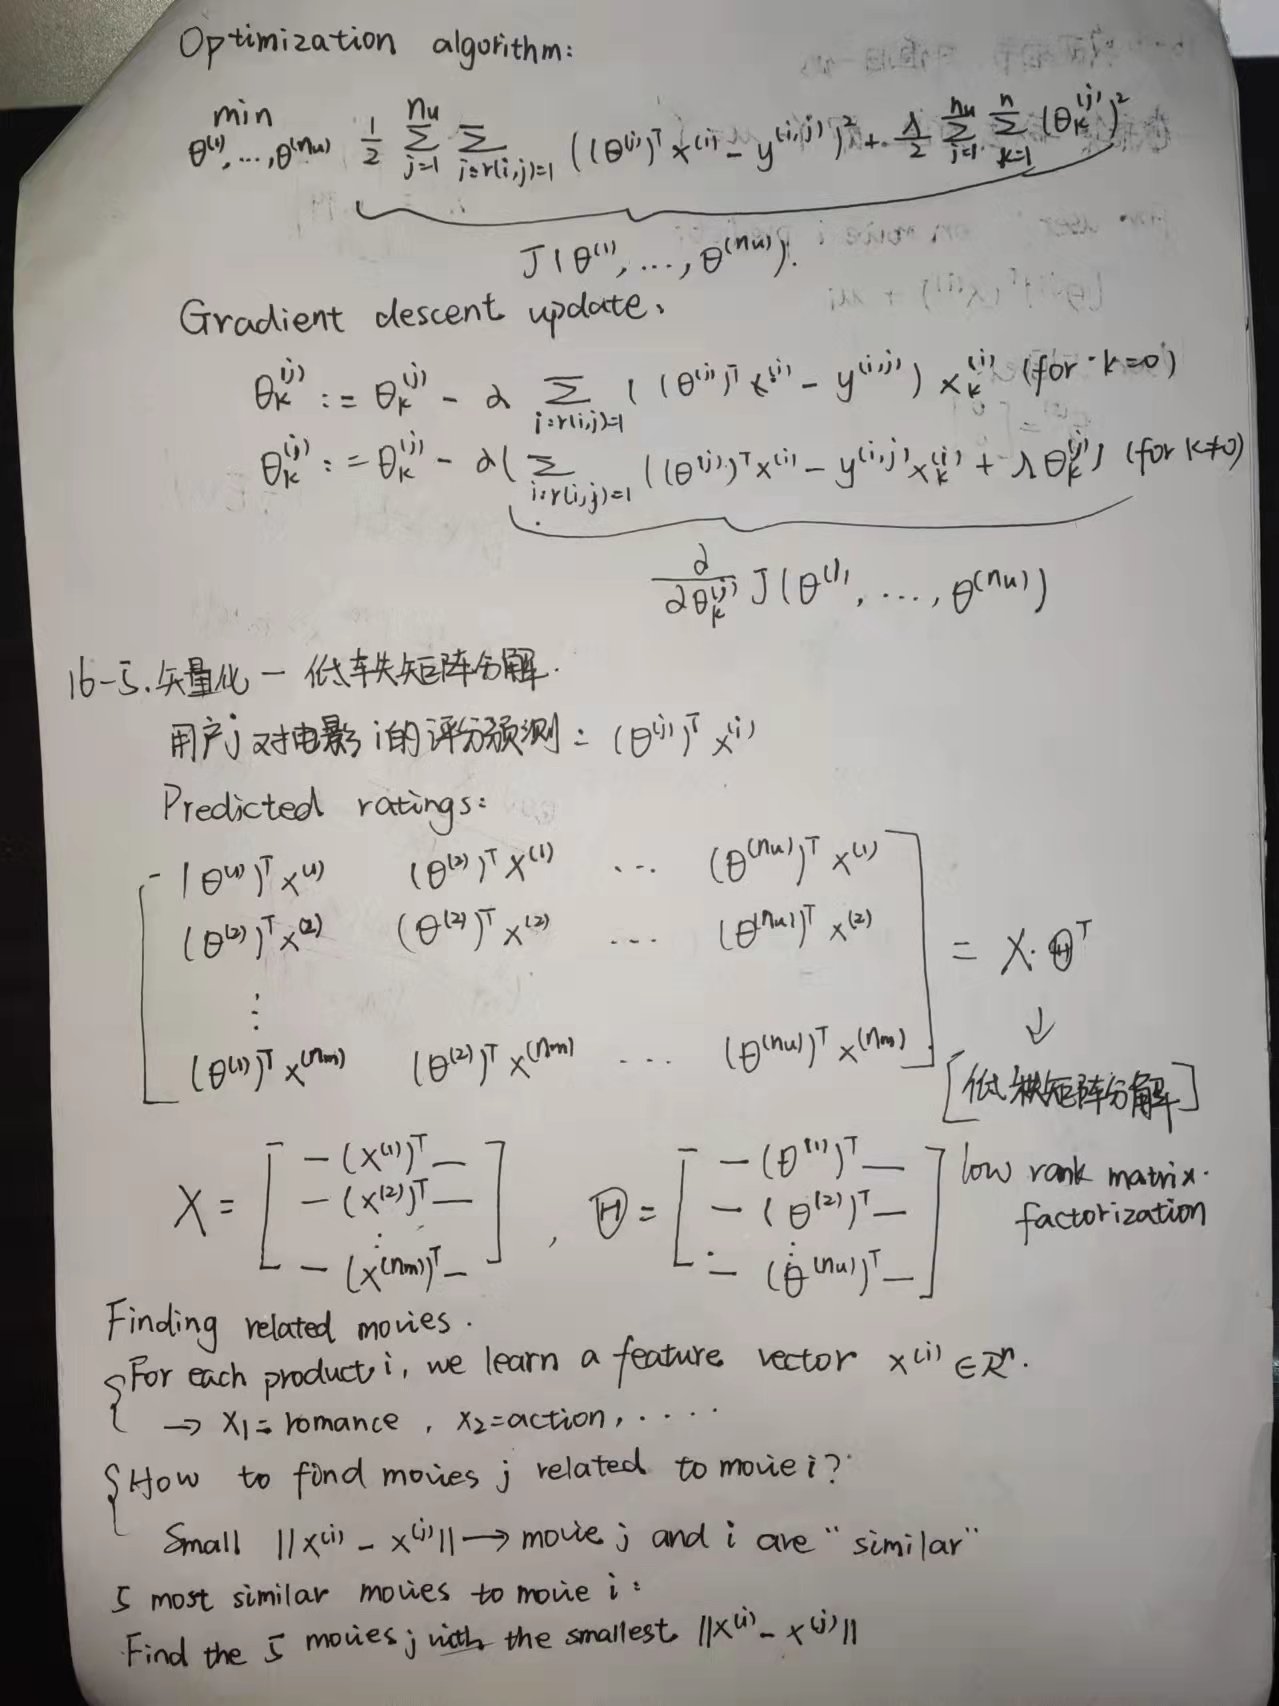 Optimization algorithm:
min θ⁽¹⁾,…,θ⁽ⁿᵘ⁾ 1/2 Σ_{j=1}^{nu} Σ_{i:r(i,j)=1} ((θ^{(j)})^T x^{(i)} - y^{(i,j)})^2 + λ/2 Σ_{j=1}^{nu} Σ_{k=1}^{n} (θ_k^{(j)})^2
J(θ^{(1)}, ..., θ^{(nu)}).
Gradient descent update:
θ_k^{(j)} := θ_k^{(j)} - α Σ_{i:r(i,j)=1} ((θ^{(j)})^T x^{(i)} - y^{(i,j)}) x_k^{(i)} (for k=0)
θ_k^{(j)} := θ_k^{(j)} - α( Σ_{i:r(i,j)=1} ((θ^{(j)})^T x^{(i)} - y^{(i,j)} x_k^{(i)} + λ θ_k^{(j)}) (for k≠0)
∂/∂θ_k^{(j)} J(θ^{(1)}, ..., θ^{(nu)})
16-5. 矢量化 — 低秩矩阵分解.
用户j对电影i的评分预测: (θ^{(j)})^T x^{(i)}
Predicted ratings:
(θ^{(1)})^T x^{(1)} (θ^{(2)})^T x^{(1)} ... (θ^{(nu)})^T x^{(1)}
(θ^{(2)})^T x^{(2)} (θ^{(2)})^T x^{(2)} ... (θ^{(nu)})^T x^{(2)} = X·Θ^T
⋮ ↓
(θ^{(1)})^T x^{(nm)} (θ^{(2)})^T x^{(nm)} ... (θ^{(nu)})^T x^{(nm)}
[低秩矩阵分解]
low rank matrix.
factorization
X = [ — (x^{(1)})^T — , Θ = [ — (θ^{(1)})^T — ]
— (x^{(2)})^T — — (θ^{(2)})^T —
⋮ ⋮
— (x^{(nm)})^T — — (θ^{(nu)})^T —
Finding related movies.
For each product i, we learn a feature vector x^{(i)} ∈ R^n.
→ x₁ = romance, x₂ = action, ....
How to find movies j related to movie i?
Small ||x^{(i)} - x^{(j)}|| → movie j and i are "similar"
5 most similar movies to movie i:
Find the 5 movies j with the smallest ||x^{(i)} - x^{(j)}||